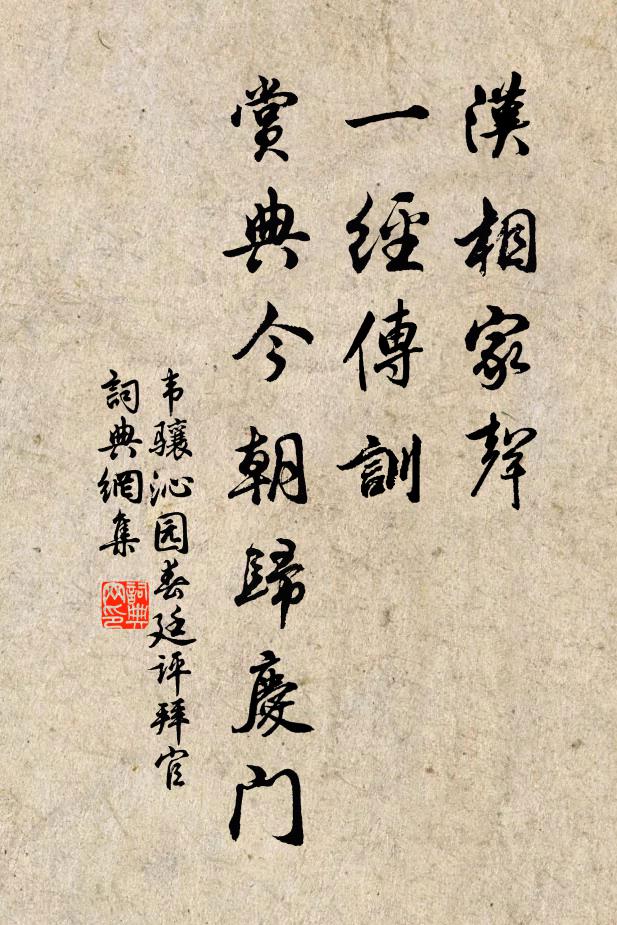 漢相家聲
一經傳訓
賞典今朝歸慶門
韦骧沁园春廷评拜官
詞典網集
詞典网印